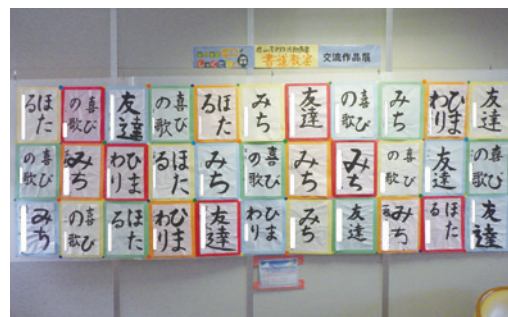 書道教室
交流作品展
ほた
る
喜び
の歌
友達
喜び
の歌
ほた
る
みち
友達
喜び
の歌
みち
ひま
わり
友達
喜び
の歌
みち
ひま
わり
ほた
る
みち
喜び
の歌
みち
みち
喜び
の歌
友達
喜び
の歌
みち
喜び
の歌
ほた
る
ひま
わり
友達
ひま
わり
みち
友達
みち
ほた
る
友達